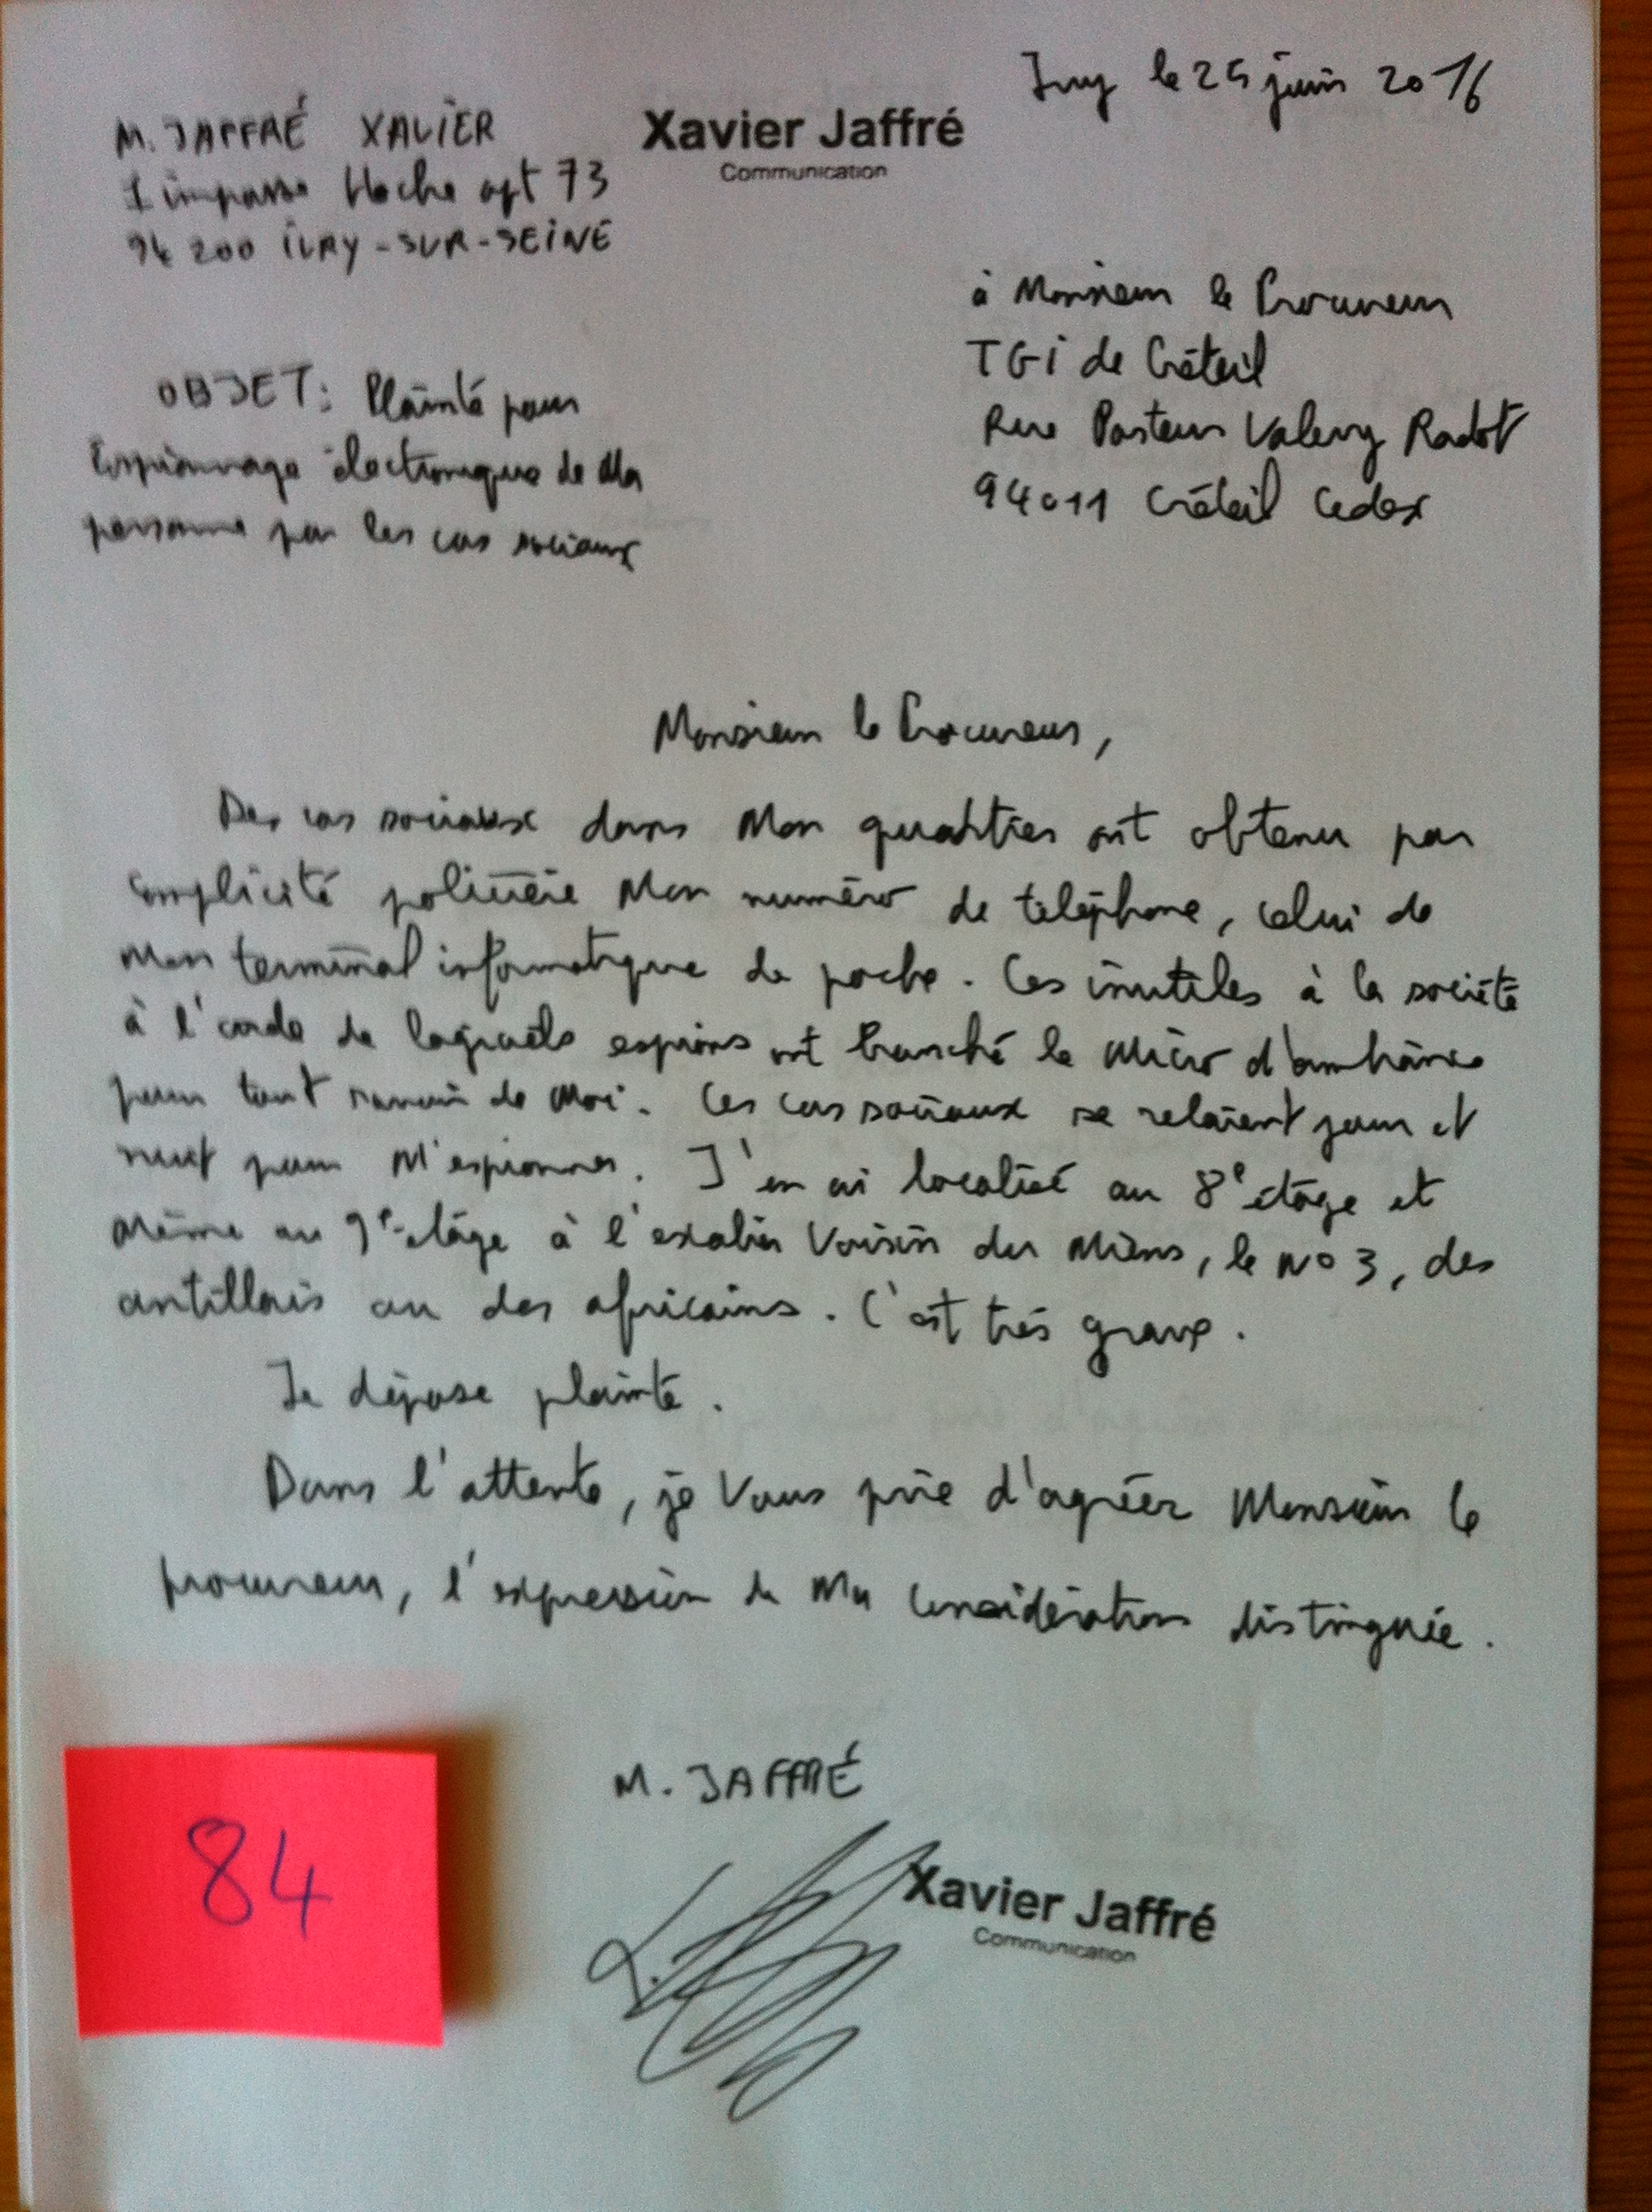 Ivry le 25 juin 2016
M. JAFFRÉ XAVIER
Xavier Jaffré
Communication
1 impasse Hoche apt 73
94200 IVRY-SUR-SEINE
à Monsieur le Procureur
TGI de Créteil
Rue Pasteur Valery Radot
94011 Créteil Cedex
OBJET: Plainte pour
Espionnage électronique de Ma
personne par les cas sociaux
Monsieur le Procureur,
Des cas sociaux dans Mon quartier ont obtenu par
complicité policière Mon numéro de téléphone, celui de
Mon terminal informatique de poche. Ces inutiles à la société
à l'aide de logiciels espions ont branché le Micro d'ambiance
pour tout savoir de Moi. Ces cas sociaux se relaient jour et
nuit pour M'espionner. J'en ai localisé au 8e étage et
Même au 9e étage à l'escalier Voisin du Mien, le N° 3, des
antillais ou des africains. C'est très grave.
Je dépose plainte.
Dans l'attente, je Vous prie d'agréer Monsieur le
procureur, l'expression de Ma considération distinguée.
M. JAFFRÉ
Xavier Jaffré
Communication
84